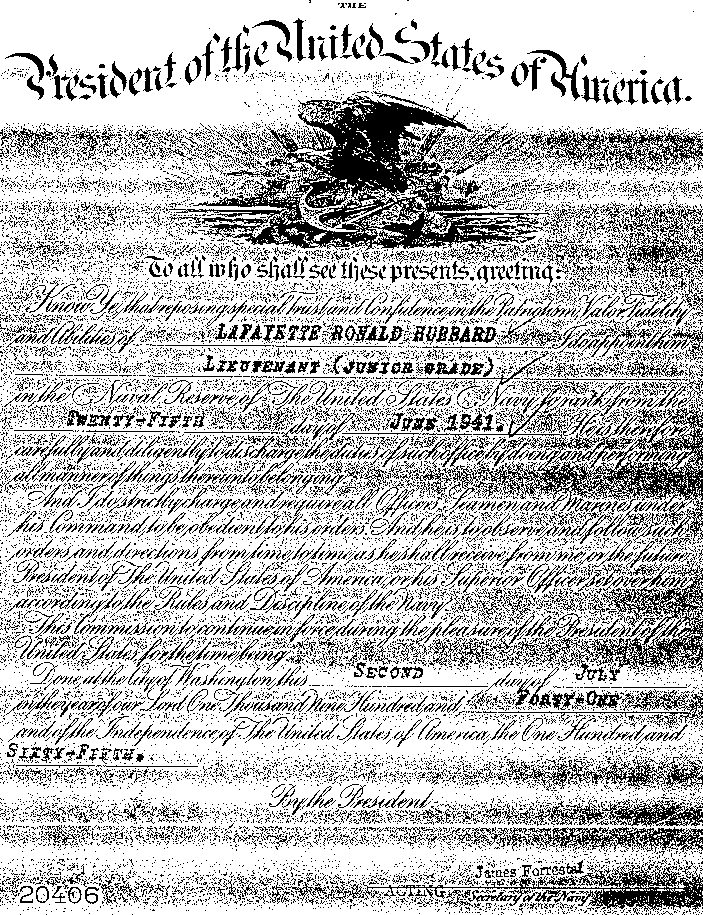 THE
President of the United States of America.
To all who shall see these presents, greeting:
Know Ye, that reposing special Trust and Confidence in the Patriotism, Valor, Fidelity
and Abilities of LAFAYETTE RONALD HUBBARD I do appoint him
LIEUTENANT (JUNIOR GRADE)
in the Naval Reserve of The United States Navy to rank from the
TWENTY-FIFTH day of JUNE 1941. He is therefore
carefully and diligently to discharge the duties of such office by doing and performing
all manner of things thereunto belonging.
And I do strictly charge and require all Officers, Seamen and Marines under
his Command to be obedient to his orders. And he is to observe and follow such
orders and directions from time to time as he shall receive from me, or the future
President of The United States of America, or his Superior Officer set over him
according to the Rules and Discipline of the Navy.
This Commission to continue in force during the pleasure of the President of the
United States, for the time being.
Done at the City of Washington, this SECOND day of JULY
in the year of our Lord One Thousand Nine Hundred and FORTY-ONE
and of the Independence of The United States of America, the One Hundred and
SIXTY-FIFTH.
By the President
James Forrestal
20406 ACTING Secretary of the Navy